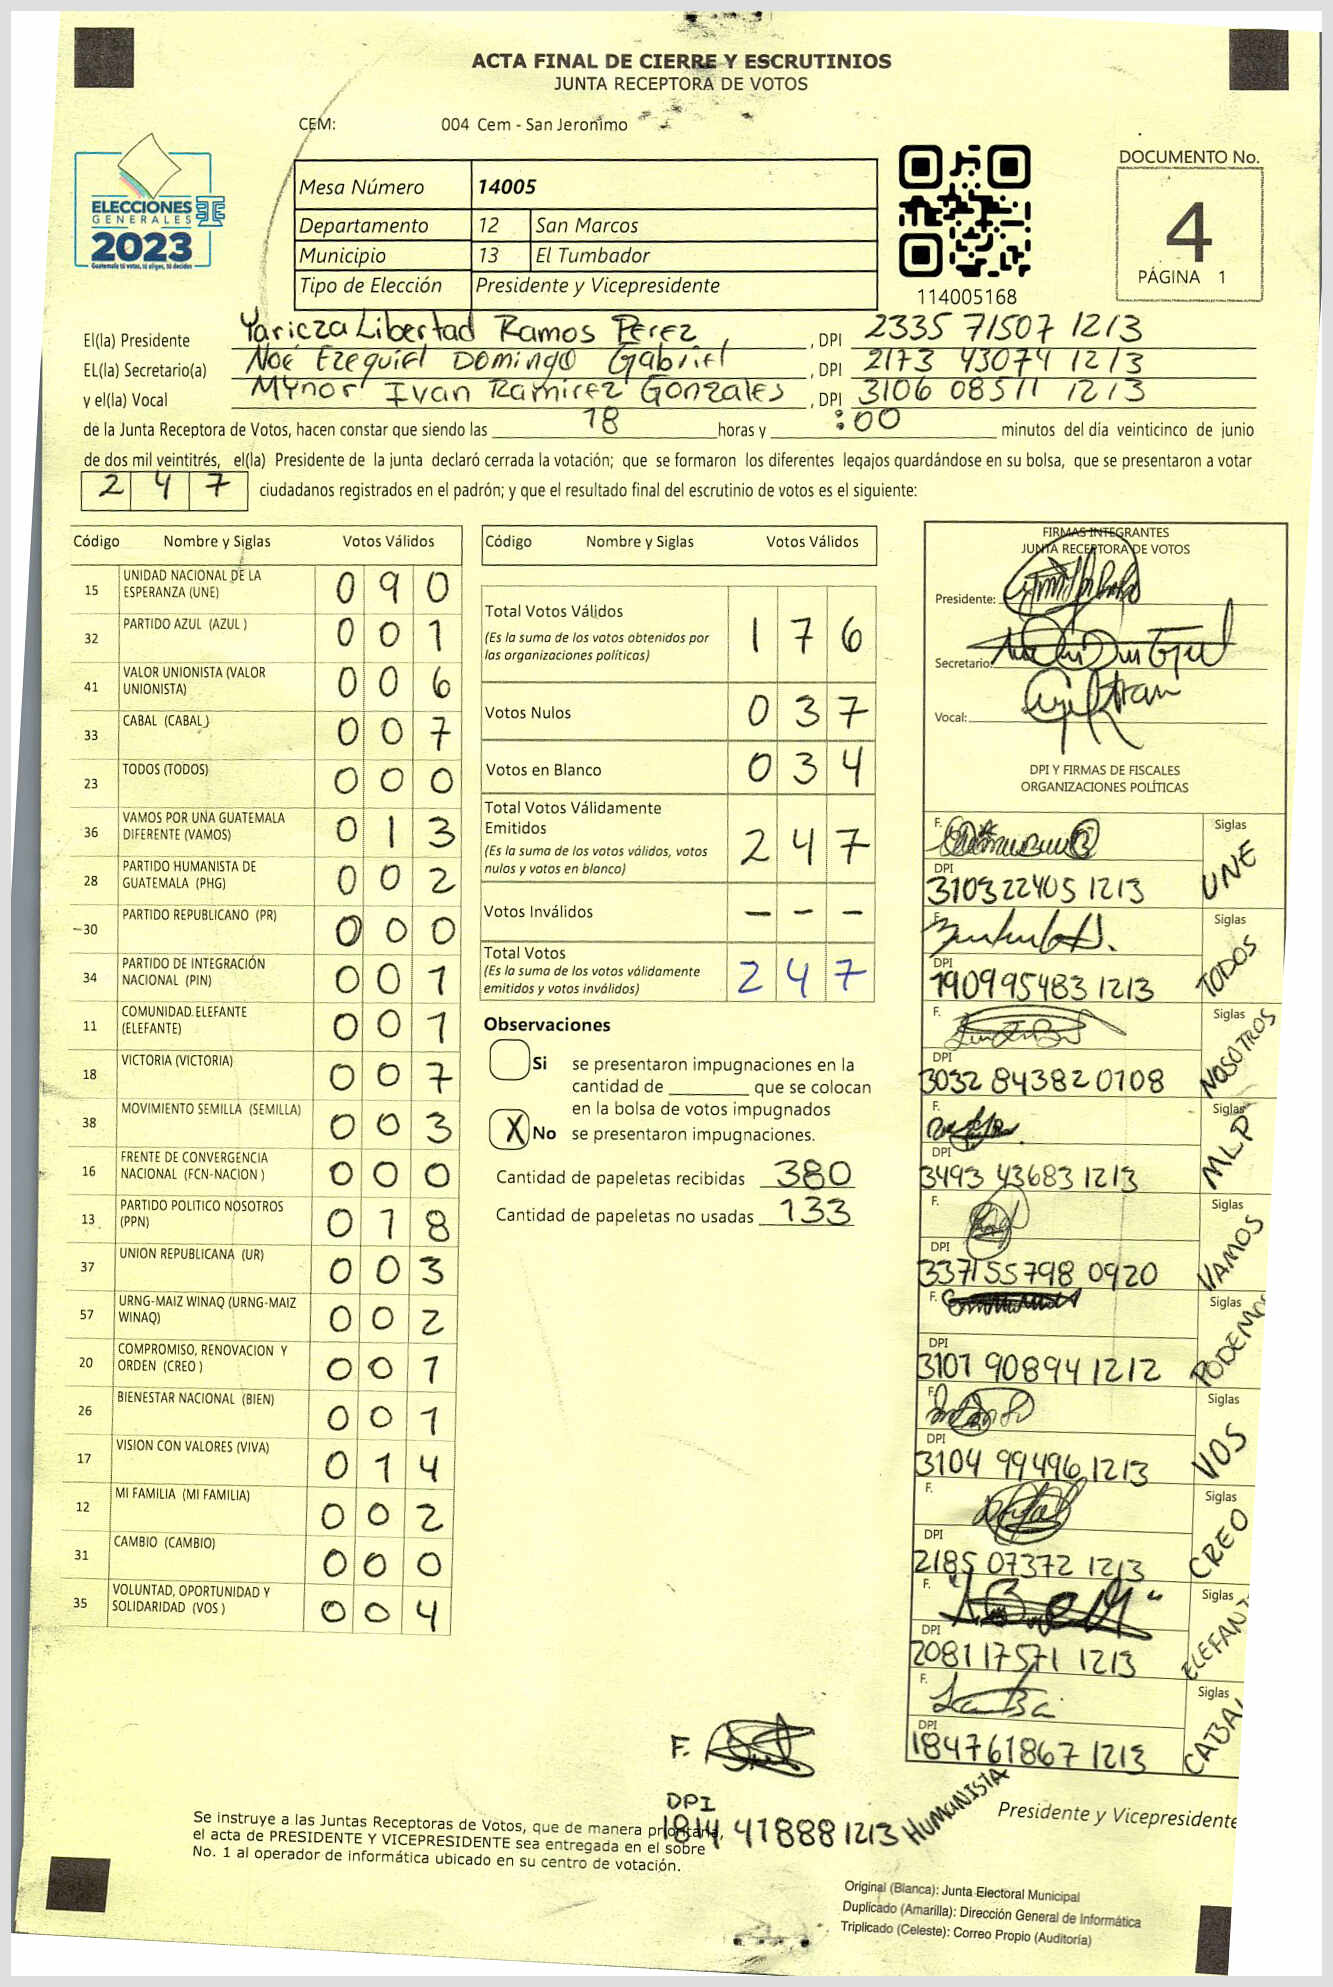 ACTA FINAL DE CIERRE Y ESCRUTINIOS
JUNTA RECEPTORA DE VOTOS
CEM: 004 Cem - San Jeronimo
ELECCIONES
GENERALES
2023
Guatemala tú votas, tú eliges, tú decides
Mesa Número 14005
Departamento 12 San Marcos
Municipio 13 El Tumbador
Tipo de Elección Presidente y Vicepresidente
114005168
DOCUMENTO No.
4
PÁGINA 1
El(la) Presidente Yaricza Libertad Ramos Pérez, DPI 2335 71507 1213
EL(la) Secretario(a) Noé Ezequiel Domingo Gabriel, DPI 2173 43074 1213
y el(la) Vocal Mynor Ivan Ramirez Gonzales, DPI 3106 08511 1213
de la Junta Receptora de Votos, hacen constar que siendo las 18 horas y :00 minutos del día veinticinco de junio
de dos mil veintitrés, el(la) Presidente de la junta declaró cerrada la votación; que se formaron los diferentes legajos guardándose en su bolsa, que se presentaron a votar
247 ciudadanos registrados en el padrón; y que el resultado final del escrutinio de votos es el siguiente:
Código Nombre y Siglas Votos Válidos
15 UNIDAD NACIONAL DE LA ESPERANZA (UNE) 090
32 PARTIDO AZUL (AZUL ) 001
41 VALOR UNIONISTA (VALOR UNIONISTA) 006
33 CABAL (CABAL ) 007
23 TODOS (TODOS) 000
36 VAMOS POR UNA GUATEMALA DIFERENTE (VAMOS) 013
28 PARTIDO HUMANISTA DE GUATEMALA (PHG) 002
30 PARTIDO REPUBLICANO (PR) 000
34 PARTIDO DE INTEGRACIÓN NACIONAL (PIN) 001
11 COMUNIDAD ELEFANTE (ELEFANTE) 001
18 VICTORIA (VICTORIA) 007
38 MOVIMIENTO SEMILLA (SEMILLA) 003
16 FRENTE DE CONVERGENCIA NACIONAL (FCN-NACION ) 000
13 PARTIDO POLITICO NOSOTROS (PPN) 018
37 UNION REPUBLICANA (UR) 003
57 URNG-MAIZ WINAQ (URNG-MAIZ WINAQ) 002
20 COMPROMISO, RENOVACION Y ORDEN (CREO ) 001
26 BIENESTAR NACIONAL (BIEN) 001
17 VISION CON VALORES (VIVA) 014
12 MI FAMILIA (MI FAMILIA) 002
31 CAMBIO (CAMBIO) 000
35 VOLUNTAD, OPORTUNIDAD Y SOLIDARIDAD (VOS ) 004
Código Nombre y Siglas Votos Válidos
Total Votos Válidos 176
(Es la suma de los votos obtenidos por
las organizaciones políticas)
Votos Nulos 037
Votos en Blanco 034
Total Votos Válidamente
Emitidos 247
(Es la suma de los votos válidos, votos
nulos y votos en blanco)
Votos Inválidos - - -
Total Votos 247
(Es la suma de los votos válidamente
emitidos y votos inválidos)
Observaciones
Si se presentaron impugnaciones en la
cantidad de ________ que se colocan
en la bolsa de votos impugnados
X No se presentaron impugnaciones.
Cantidad de papeletas recibidas 380
Cantidad de papeletas no usadas 133
FIRMAS INTEGRANTES
JUNTA RECEPTORA DE VOTOS
Presidente:
Secretario:
Vocal:
DPI Y FIRMAS DE FISCALES
ORGANIZACIONES POLÍTICAS
F. Siglas UNE
DPI
310322405 1213
F. Siglas TODOS
DPI
190995483 1213
F. Siglas NOSOTROS
DPI
3032 84382 0108
F. Siglas MLP
DPI
3493 43683 1213
F. Siglas VAMOS
DPI
3371 55798 0920
F. Siglas PODEMOS
DPI
3101 90894 1212
F. Siglas VOS
DPI
3104 99496 1213
F. Siglas CREO
DPI
2185 07372 1213
F. Siglas ELEFANT
DPI
2081 17571 1213
F. Siglas CABAL
DPI
1847 61867 1213
F.
DPI
1814 41888 1213 HUMANISTA
Presidente y Vicepresidente
Se instruye a las Juntas Receptoras de Votos, que de manera prioritaria,
el acta de PRESIDENTE Y VICEPRESIDENTE sea entregada en el sobre
No. 1 al operador de informática ubicado en su centro de votación.
Original (Blanca): Junta Electoral Municipal
Duplicado (Amarilla): Dirección General de Informática
Triplicado (Celeste): Correo Propio (Auditoría)